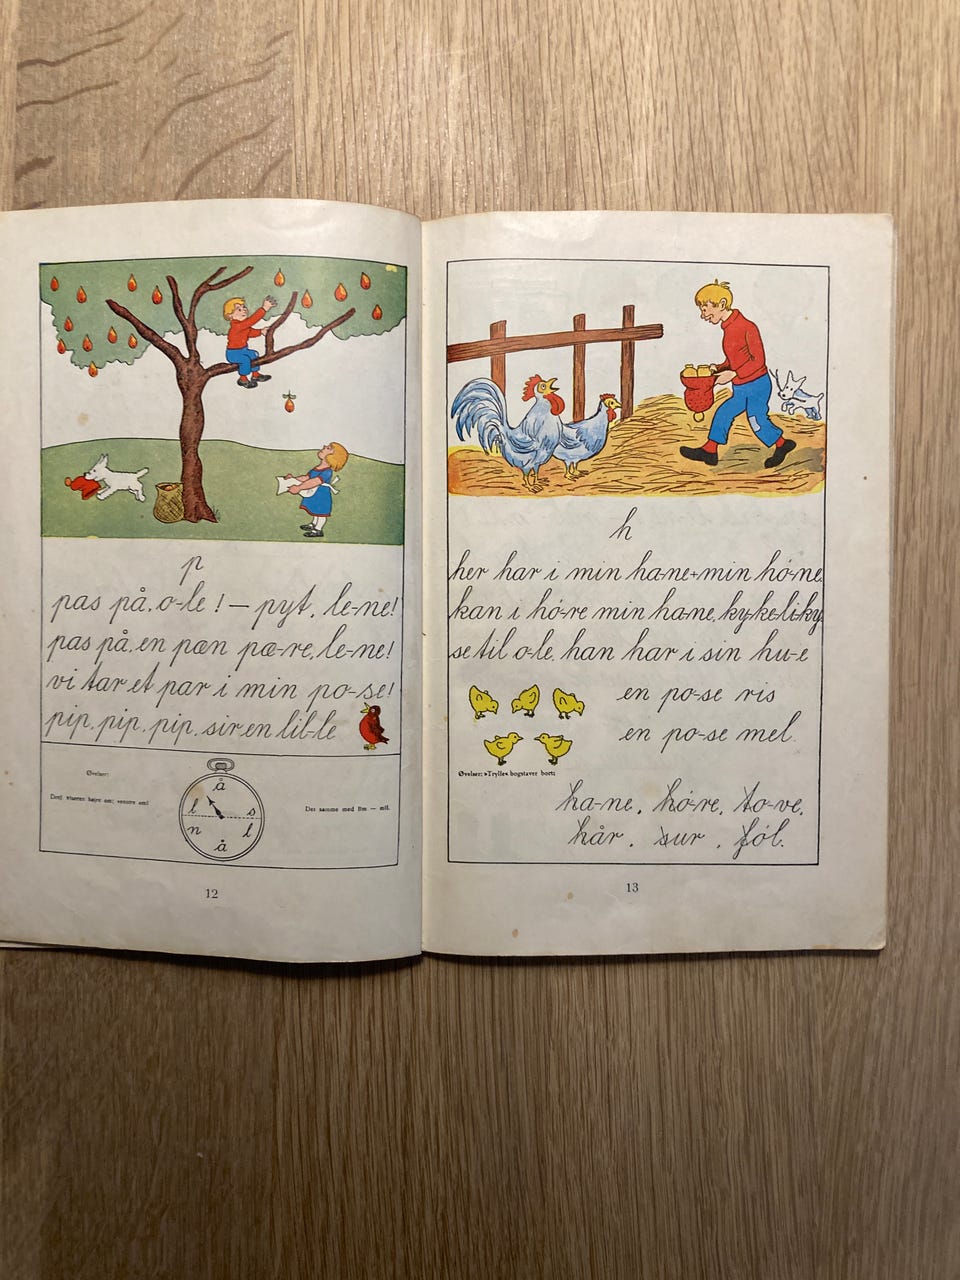 p
pas på, o-le! — pyt, le-ne!
pas på, en pæn pæ-re, le-ne!
vi tar et par i min po-se!
pip, pip, pip, sir en lil-le
Øvelser:
Drej viseren højre om; venstre om!
å
l
s
n
l
å
Det samme med Ilm — nål.
12
h
her har i min ha-ne + min hø-ne.
kan i hø-re min ha-ne, ky-ke-li-ky
se til o-le, han har i sin hu-e
en po-se ris
en po-se mel.
Øvelser: »Trylle« bogstaver bort:
ha-ne, hø-re, to-ve,
hår, sur, føl.
13